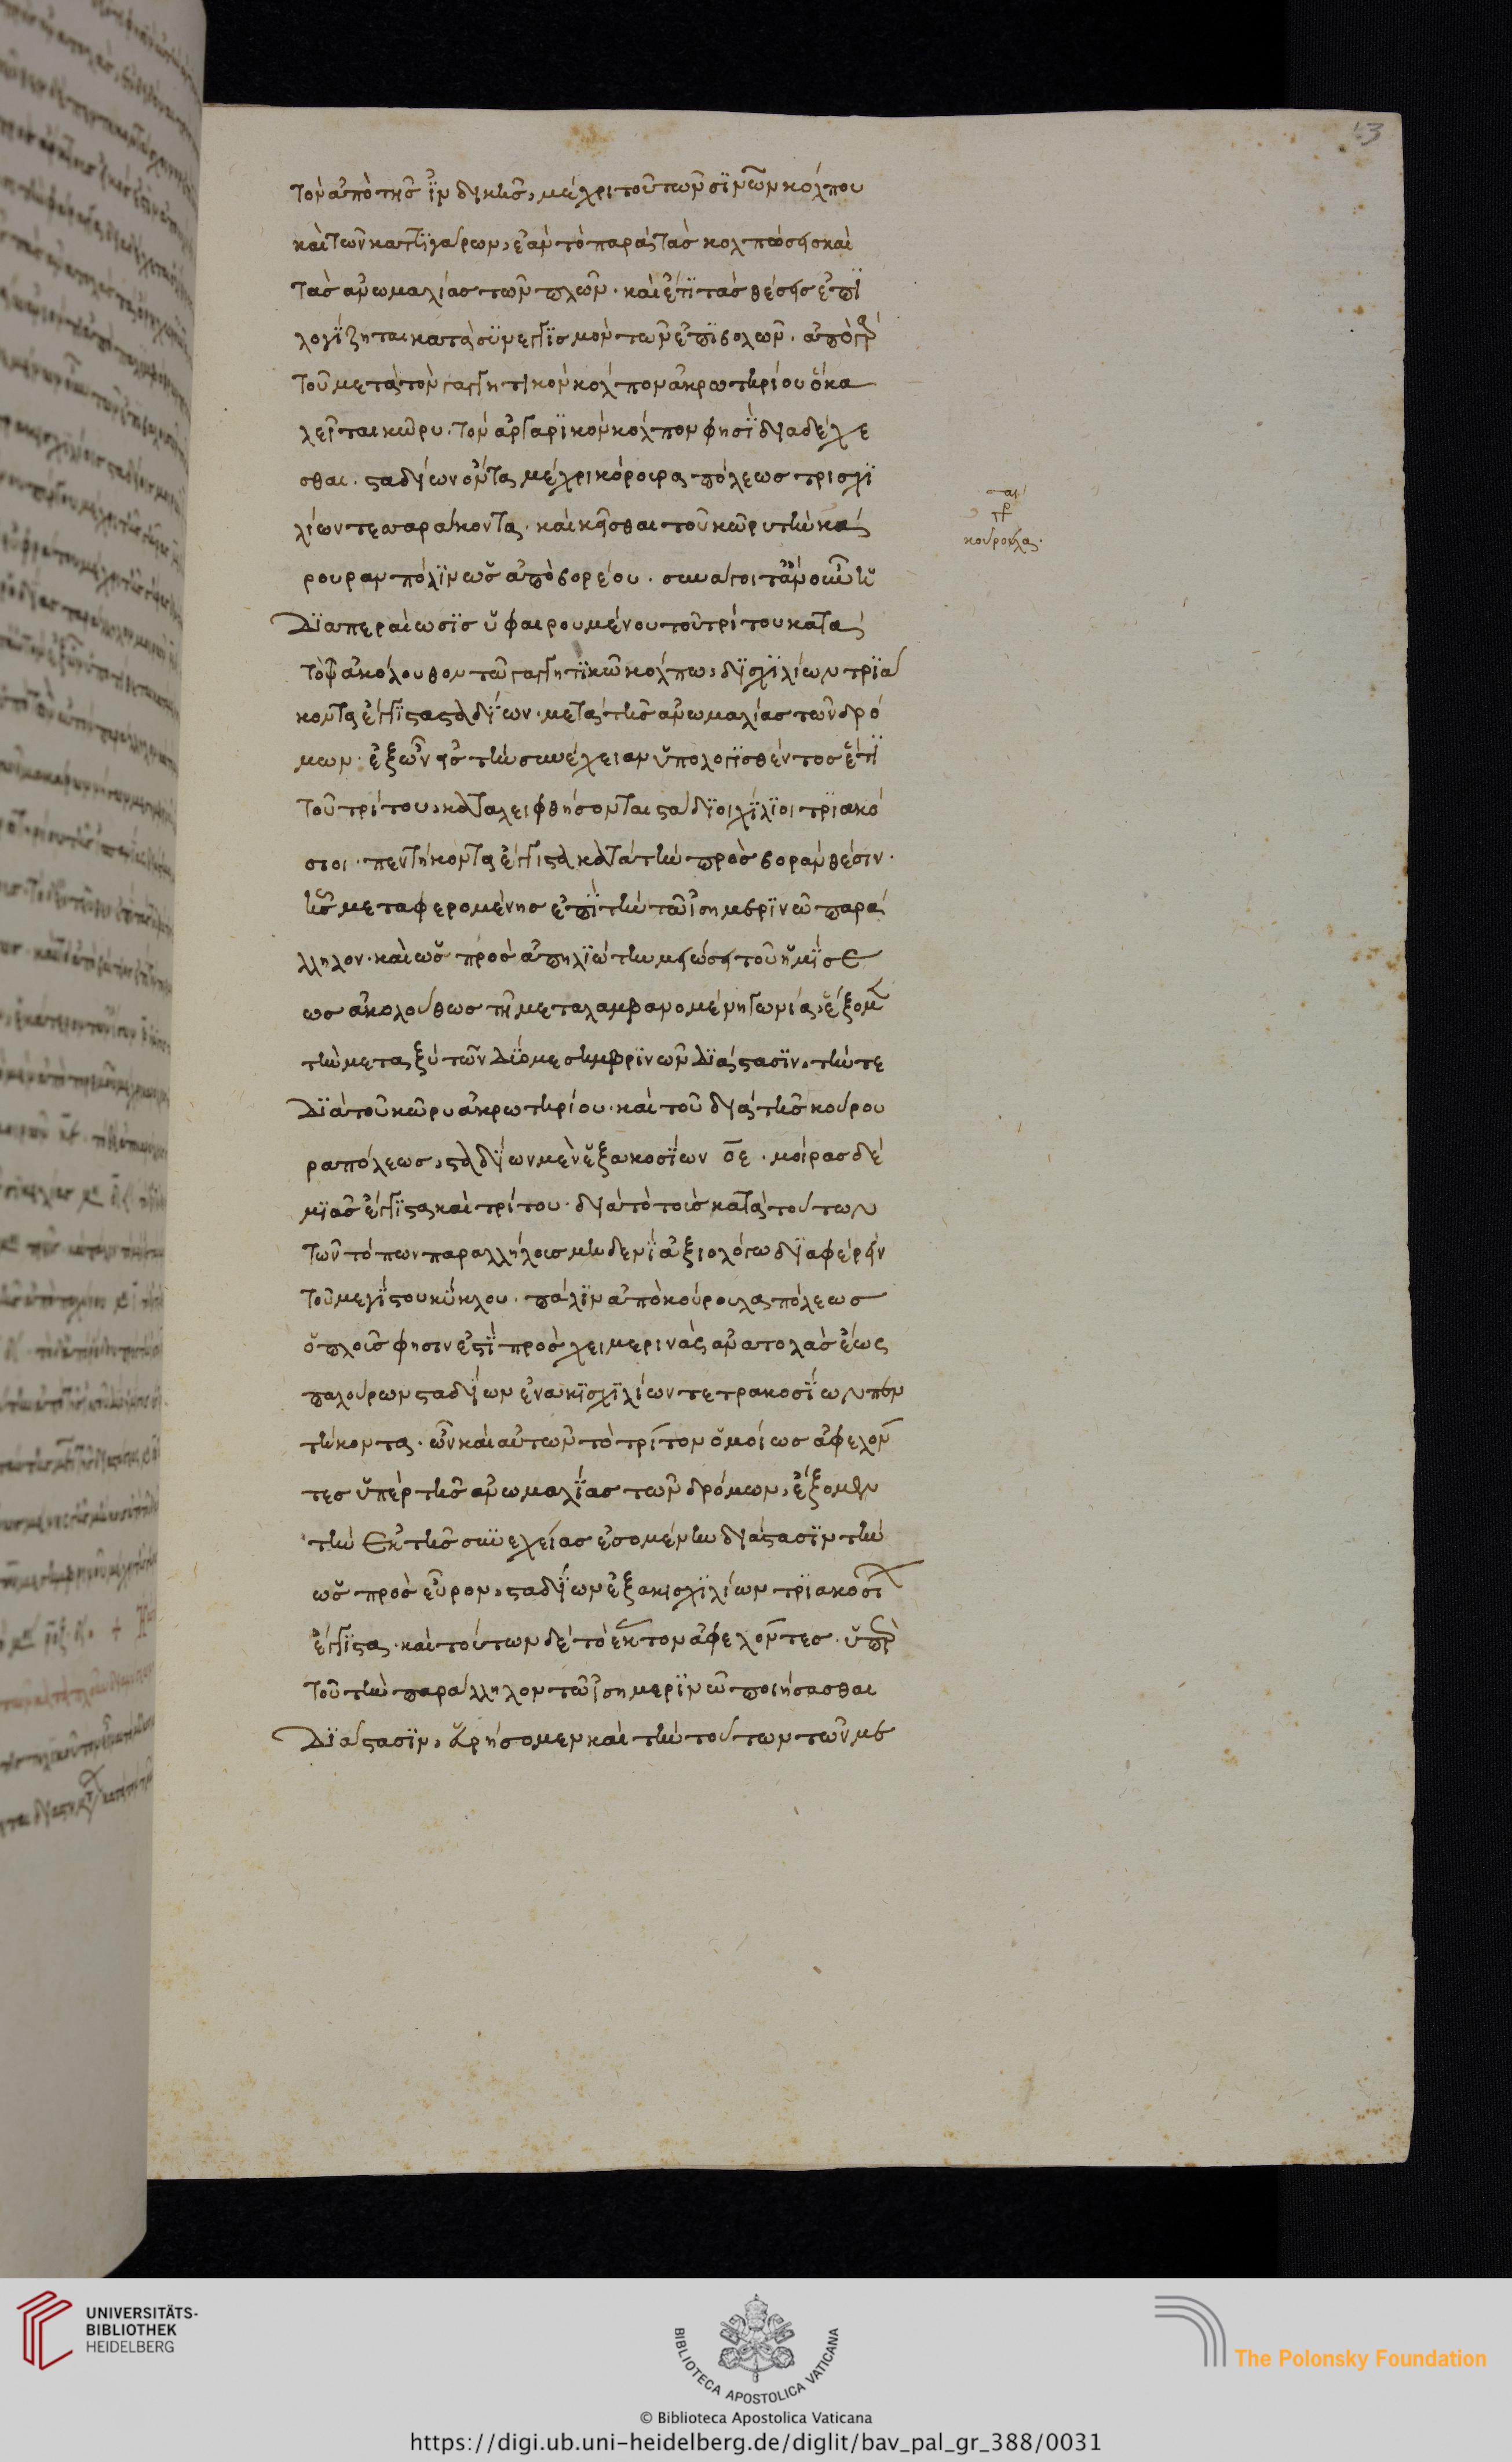 13
τὸν ἀπὸ τῆς ἰνδικῆς, μέχρι τοῦ τῶν σινῶν κόλπου
καὶ τῶν καττιγάρων, ἐὰν τὸ παρὰ τὰς κολπώσεις καὶ
τὰς ἀνωμαλίας τῶν πλῶν. καὶ ἔτι τὰς θέσεις ἐπι
λογίζηται κατὰ συνεγγισμὸν τῶν ἐπιβολῶν. ἀπὸ γὰρ
τοῦ μετὰ τὸν γαγγητικὸν κόλπον ἀκρωτηρίου ὃ κα
λεῖται κῶρυ. τὸν ἀργαρικὸν κόλπον φησὶ διαδέχε
σθαι. σταδίων ὄντα μέχρι κόρουρα πόλεως τρισχι
λίων τεσσαράκοντα. καὶ κεῖσθαι τοῦ κῶρυ τὴν κά
ρουραν πόλιν ὡς ἀπὸ βορείου. συνάγοιτ' ἂν οὖν ἡ
διαπεραίωσις ὑφαιρουμένου τοῦ τρίτου κατὰ
τὸ ἀκόλουθον τῶ γαγγητικῶ κόλπω, δισχιλίων τριά
κοντα ἔγγιστα σταδίων. μετὰ τῆς ἀνωμαλίας τῶν δρό
μων. ἐξ ὧν εἰς τὴν συνέχειαν ὑπολογισθέντος ἔτι
τοῦ τρίτου, καταλειφθήσονται στάδιοι χίλιοι τριακό
σιοι. πεντήκοντα ἔγγιστα κατὰ τὴν πρὸς βορᾶν θέσιν.
ἧς μεταφερομένης ἐπὶ τὴν τῶ ἰσημβρινῶ παρά
λληλον. καὶ ὡς πρὸς ἀπηλιώτην μειώσει τοῦ ἡμίσε
ως ἀκολούθως τῆ μεταλαμβανομένη γωνία, ἕξομεν
τὴν μεταξὺ τῶν δύο μεσημβρινῶν διάστασιν, τήν τε
διὰ τοῦ κῶρυ ἀκρωτηρίου. καὶ τοῦ διὰ τῆς κούρου
ρα πόλεως, σταδίων μὲν ἑξακοσίων οε. μοίρας δὲ
μιᾶς ἔγγιστα καὶ τρίτου. διὰ τὸ τοὺς κατὰ τούτων
τῶν τόπων παραλλήλους μηδενὶ ἀξιολόγω διαφέρειν
τοῦ μεγίστου κύκλου. πάλιν ἀπὸ κούρουλα πόλεως
ὁ πλοῦς φησιν ἐστὶ πρὸς χειμερινὰς ἀνατολὰς ἕως
παλούρων σταδίων ἐνακισχιλίων τετρακοσίων πεν
τήκοντα. ὧν καὶ αὐτῶν τὸ τρίτον ὁμοίως ἀφελόν
τες ὑπὲρ τῆς ἀνωμαλίας τῶν δρόμων, ἕξομεν
τὴν ἐκ τῆς συνεχείας ἐσομένην διάστασιν τὴν
ὡς πρὸς εὖρον, σταδίων ἑξακισχιλίων τριακοσίων
ἔγγιστα. καὶ τούτων δὲ τὸ ἕκτον ἀφελόντες. ὑπὲρ
τοῦ τὴν παράλληλον τῶ ἰσημερινῶ ποιήσασθαι
διάστασιν, εὑρήσομεν καὶ τὴν τούτων τῶν με
γρ
κούρουλα.
UNIVERSITÄTS-
BIBLIOTHEK
HEIDELBERG
BIBLIOTECA APOSTOLICA VATICANA
The Polonsky Foundation
© Biblioteca Apostolica Vaticana
https://digi.ub.uni-heidelberg.de/diglit/bav_pal_gr_388/0031